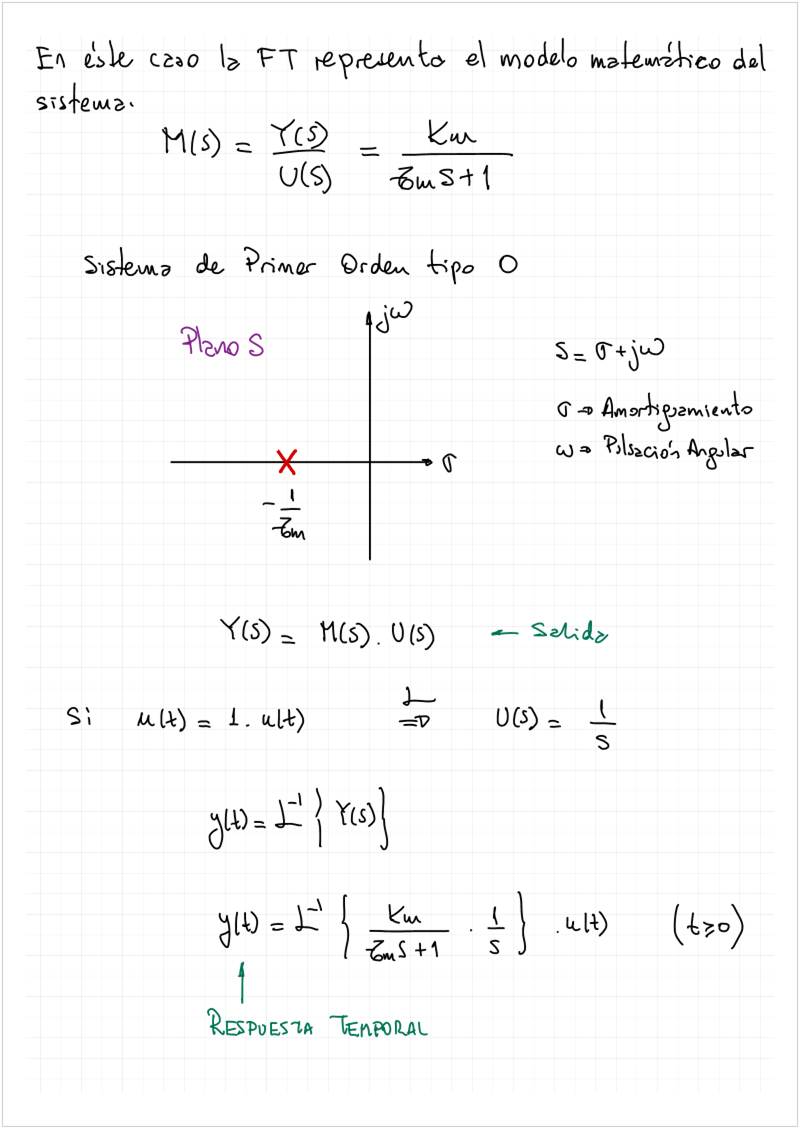 En éste caso la FT representa el modelo matemático del
sistema.
M(s) = Y(s)/U(s) = Km/(τm s+1)
Sistema de Primer Orden tipo 0
jω
Plano S
s = σ+jω
σ → Amortiguamiento
ω → Pulsación Angular
σ
-1/τm
Y(s) = M(s) . U(s) ← Salida
Si u(t) = 1 . u(t) L ⇒ U(s) = 1/s
y(t) = L⁻¹ { Y(s) }
y(t) = L⁻¹ { Km/(τm s+1) . 1/s } . u(t) (t≥0)
RESPUESTA TEMPORAL